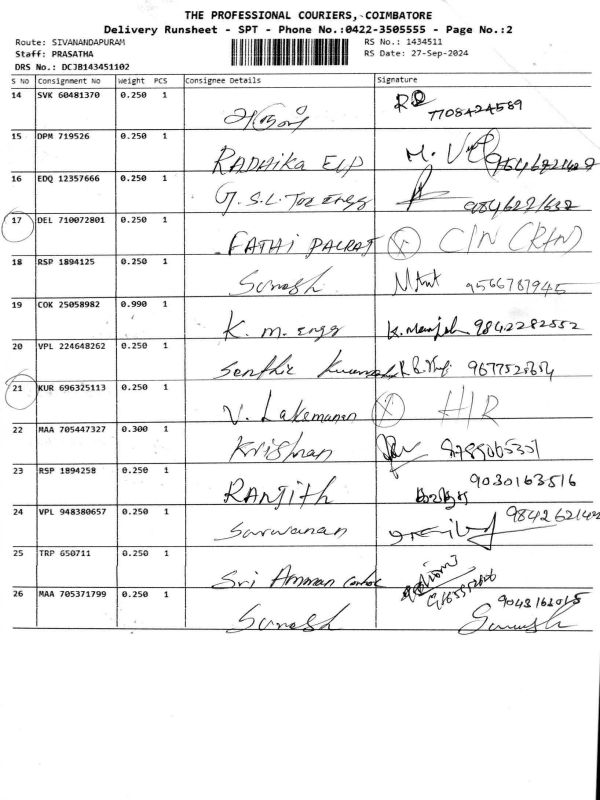 THE PROFESSIONAL COURIERS, COIMBATORE
Delivery Runsheet - SPT - Phone No.:0422-3505555 - Page No.:2
Route: SIVANANDAPURAM RS No.: 1434511
Staff: PRASATHA RS Date: 27-Sep-2024
DRS No.: DCJB143451102
S No Consignment No Weight PCS Consignee Details Signature
14 SVK 60481370 0.250 1 7708424589
15 DPM 719526 0.250 1 RADHIKA EIP M.
16 EDQ 12357666 0.250 1 G.S.L. Toz Engg
17 DEL 710072801 0.250 1 FATHI PALRAJ CIN
18 RSP 1894125 0.250 1 Suresh 9566787945
19 COK 25058982 0.990 1 K. m. engg 9842282552
20 VPL 224648262 0.250 1 Senthil
21 KUR 696325113 0.250 1 V. Lakemanan H/R
22 MAA 705447327 0.300 1 Krishnan
23 RSP 1894258 0.250 1 RANJith 9030163516
24 VPL 948380657 0.250 1 Sarwanan
25 TRP 650711 0.250 1 Sri Amman
26 MAA 705371799 0.250 1 Suresh